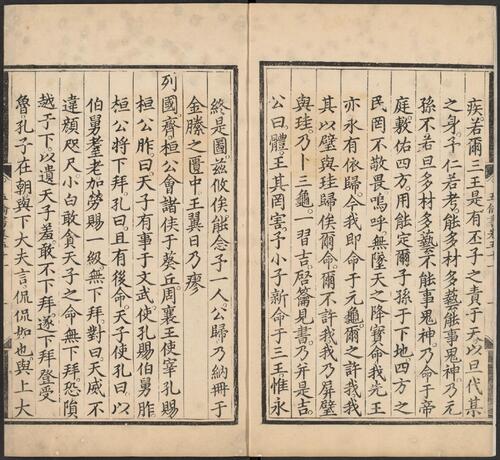 疾若爾三王是有丕子之責于天以旦代某
之身予仁若考能多材多藝能事鬼神乃元
孫不若旦多材多藝不能事鬼神乃命于帝
庭敷佑四方用能定爾子孫于下地四方之
民罔不敬畏嗚呼無墜天之降寶命我先王
亦永有依歸今我即命于元龜爾之許我我
其以璧與珪歸俟爾命爾不許我我乃屏璧
與珪乃卜三龜一習吉啓籥見書乃并是吉
公曰體王其罔害予小子新命于三王惟永
終是圖茲攸俟能念予一人公歸乃納冊于
金縢之匱中王翼日乃瘳
列國齊桓公會諸侯于葵丘周襄王使宰孔賜
桓公胙曰天子有事于文武使孔賜伯舅胙
桓公將下拜孔曰且有後命天子使孔曰以
伯舅耋老加勞賜一級無下拜對曰天威不
違顏咫尺小白敢貪天子之命無下拜恐隕
越于下以遺天子羞敢不下拜遂下拜登受
魯孔子在朝與下大夫言侃侃如也與上大